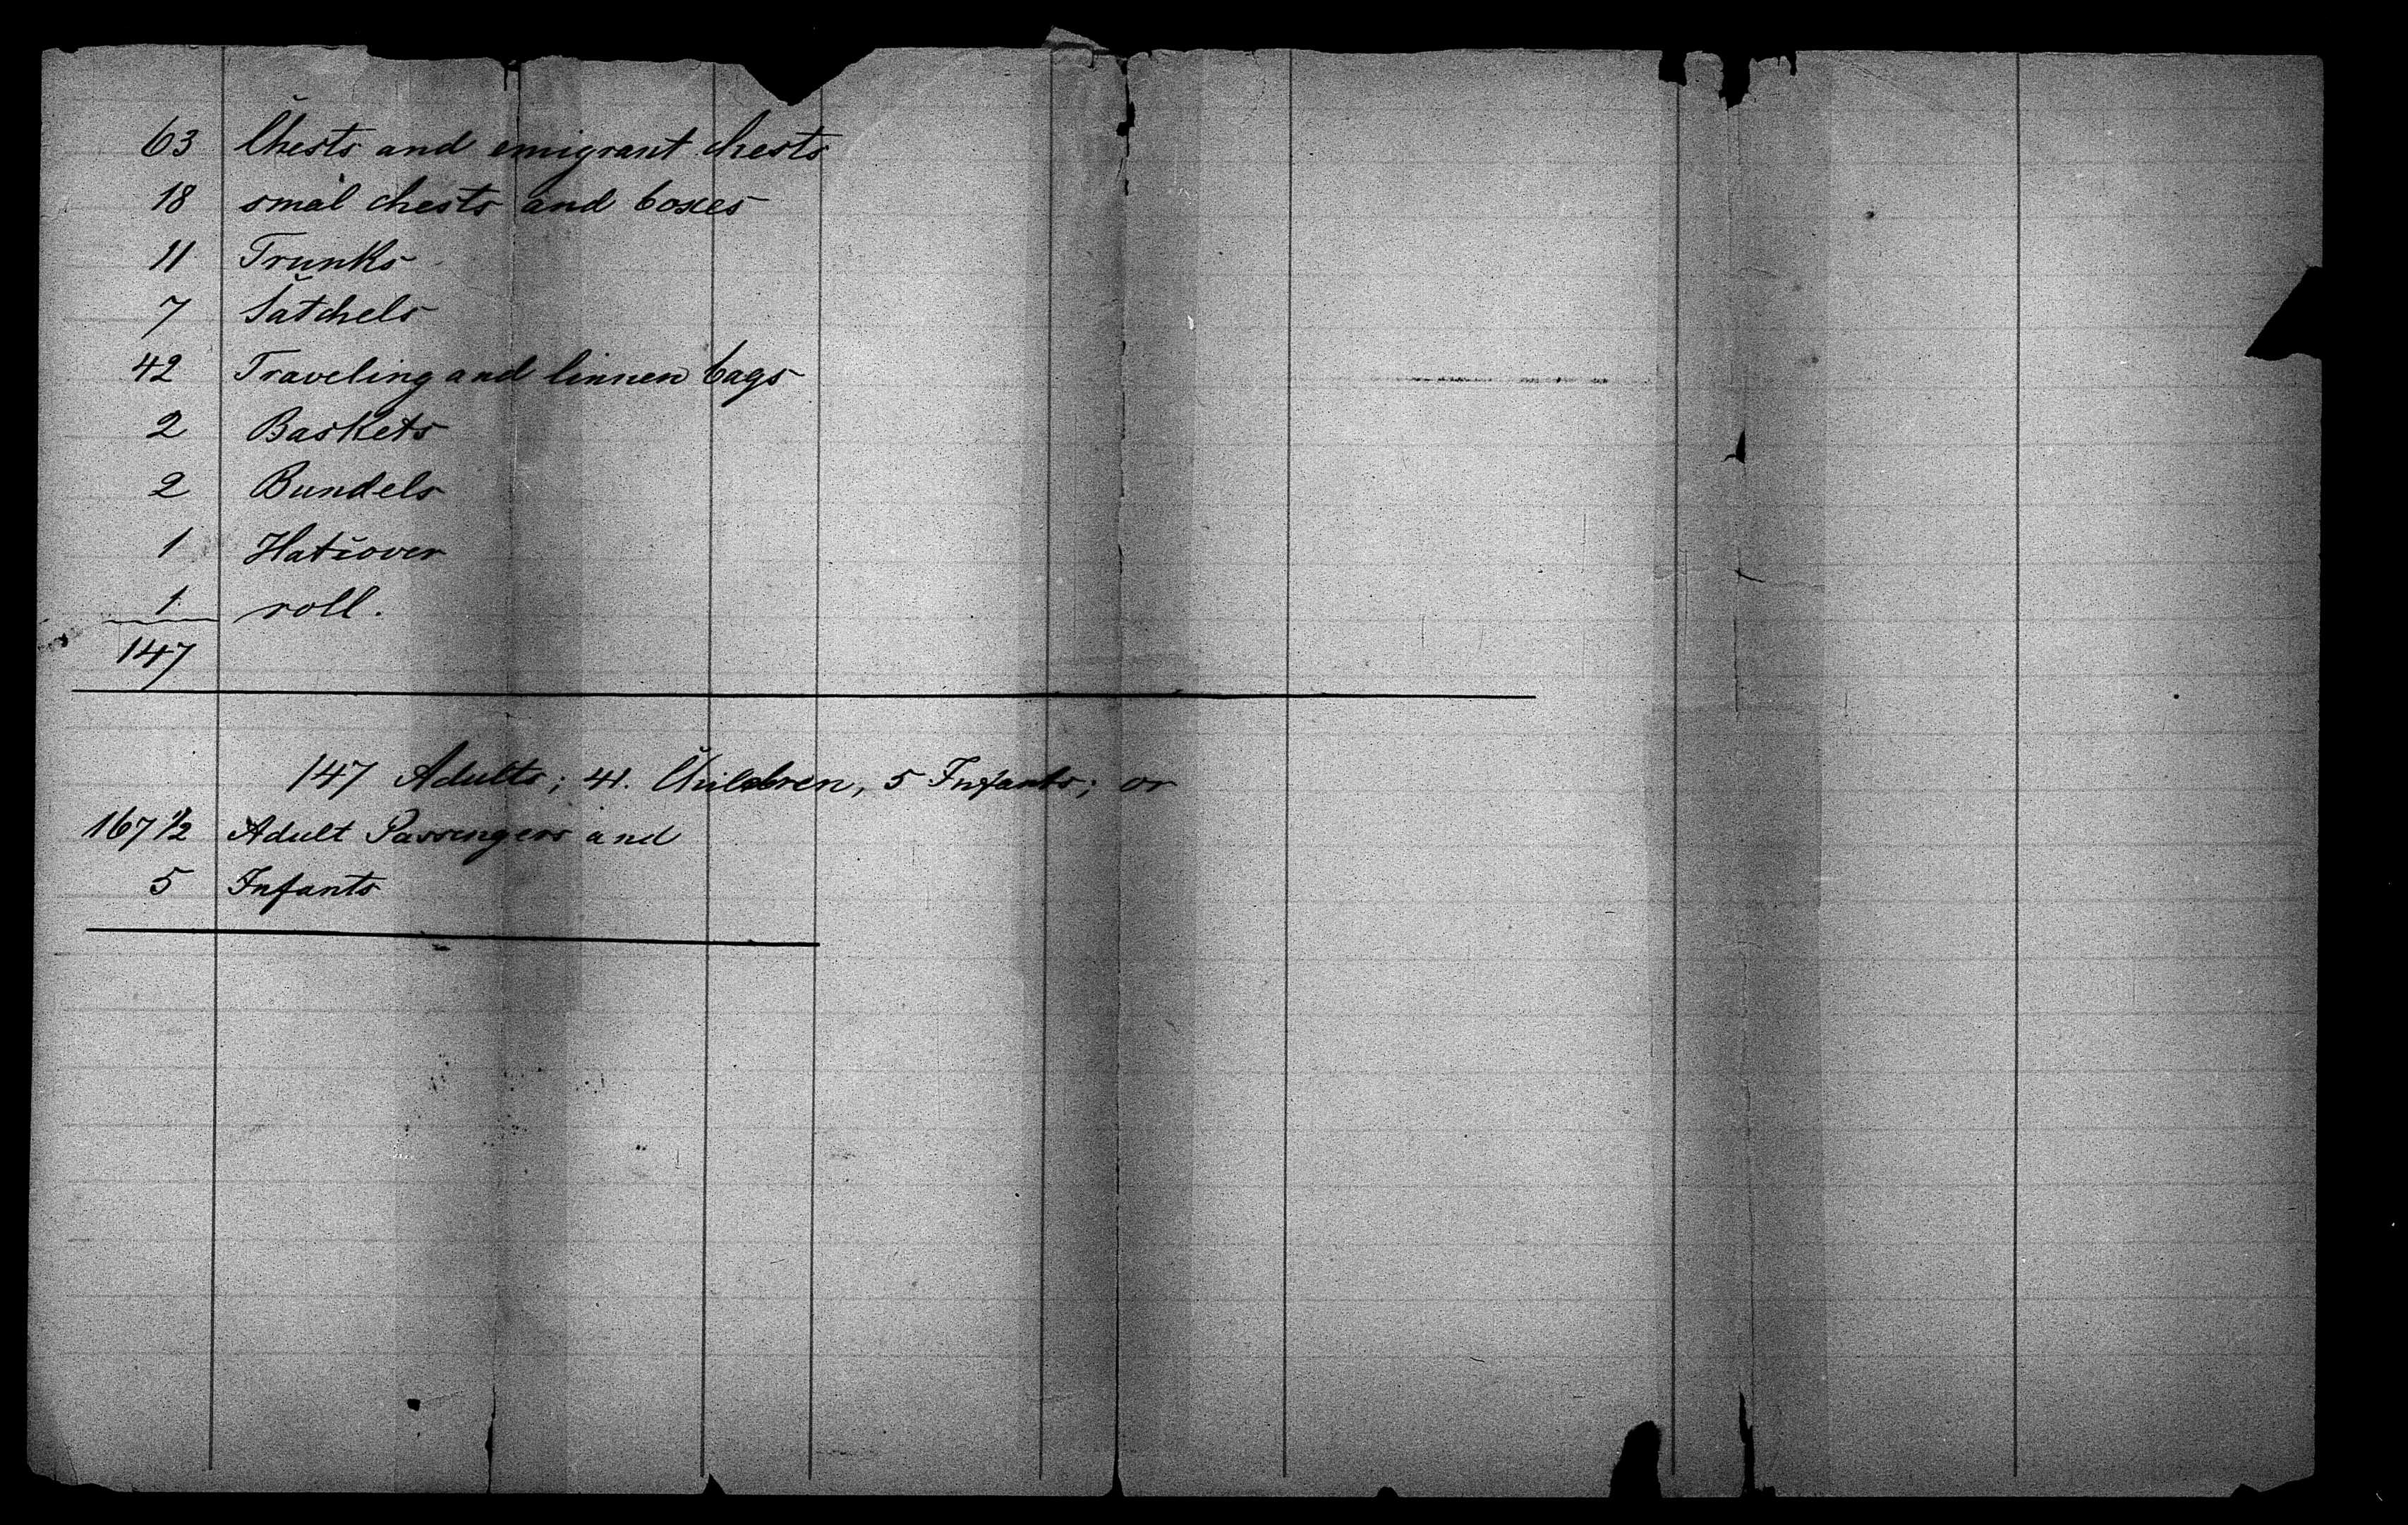 63 Chests and emigrant chests
18 smal chests and boxes
11 Trunks
7 Satchels
42 Traveling and linnen bags
2 Baskets
2 Bundels
1
1 roll.
147
147 Adults; 41. Children, 5 Infants; or
167 1/2 Adult Passengers and
5 Infants